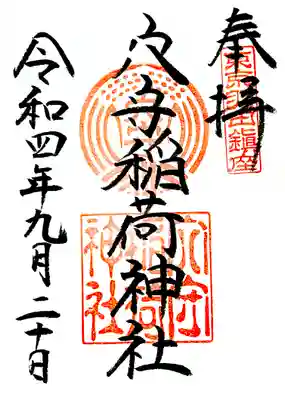 奉拝
東京羽田鎮座
穴守稲荷神社
穴守稲荷神社
令和四年九月二十日